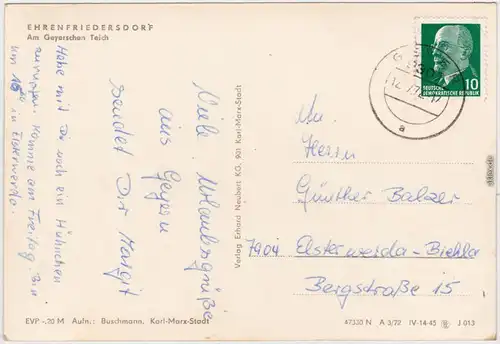 EHRENFRIEDERSDORF
Am Geyerschen Teich
Viele Urlaubsgrüße
aus Geyer
sendet Dir Margit
Habe mit Dir noch ein Hühnchen
zu rupfen. Komme am Freitag. Bin
um 16 in Elsterwerda.
EVP -,20 M Aufn.: Buschmann, Karl-Marx-Stadt
Verlag Erhard Neubert KG, 901 Karl-Marx-Stadt
10
DEUTSCHE
DEMOKRATISCHE REPUBLIK
An
Herrn
Günther Balzer
7904 Elsterwerda-Biehla
Bergstraße 15
47330 N A 3/72 IV-14-45 J 013